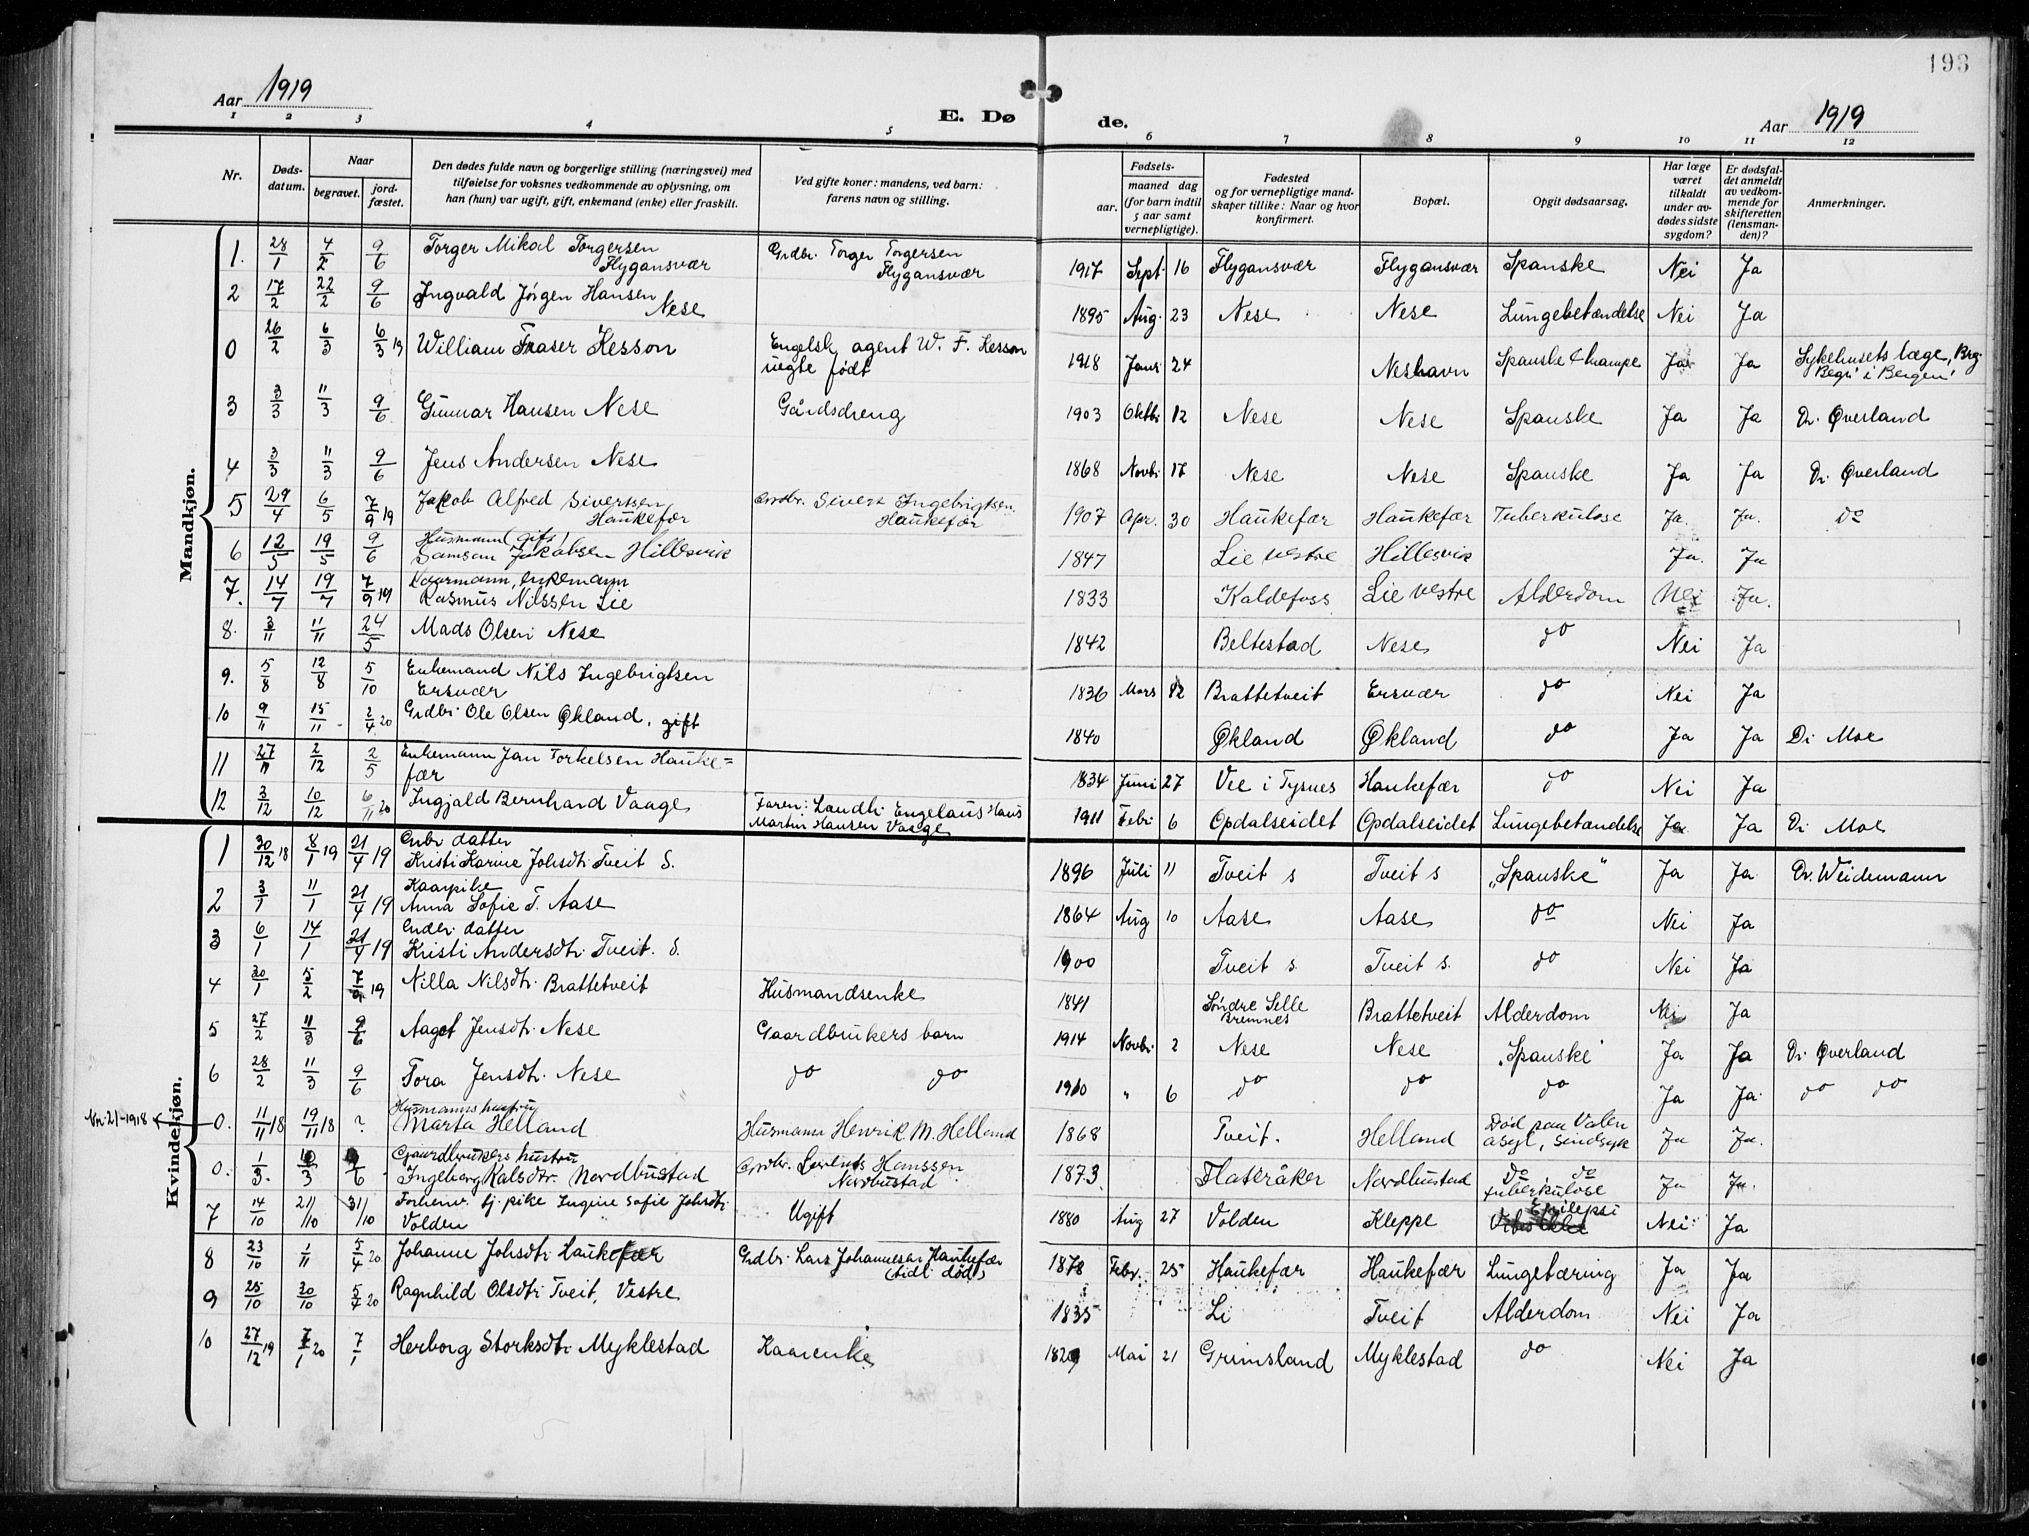 193
Aar 1919
E. Dø
de.
Aar 1919
1 2 3 4 5 6 7 8 9 10 11 12
Nr.
Døds-
datum.
Naar
begravet.
jord-
fæstet.
Den dødes fulde navn og borgerlige stilling (næringsvei) med
tilføielse for voksnes vedkommende av oplysning, om
han (hun) var ugift, gift, enkemand (enke) eller fraskilt.
Ved gifte koner: mandens, ved barn:
farens navn og stilling.
Fødsels-
aar.
maaned dag
(for barn indtil
5 aar samt
vernepligtige).
Fødested
og for vernepligtige mand-
skaper tillike: Naar og hvor
konfirmert.
Bopæl.
Opgit dødsaarsag.
Har læge
været
tilkaldt
under av-
dødes sidste
sygdom?
Er dødsfal-
det anmeldt
av vedkom-
mende for
skifteretten
(lensman-
den)?
Anmerkninger.
Mandkjøn.
1. 28/1 4/2 9/6 Torger Mikal Torgersen Grdbr. Torger Torgersen
Flygansvær Flygansvær 1917 Sept. 16 Flygansvær Flygansvær Spanske Nei Ja
2 17/2 22/2 9/6 Ingvald Jørgen Hansen
Nese 1895 Aug. 23 Nese Nese Lungebetændelse Nei Ja
0 26/2 6/3 6/3 19 William Fraser Kesson Engelsk agent W. F. Kesson
uegte født 1918 Janr 24 Neshavn Spanske & krampe Ja Ja Sykehusets læge, Brg.
Begr. i Bergen
3 3/3 11/3 9/6 Gunnar Hansen Nese Gårdsdreng 1903 Oktbr 12 Nese Nese Spanske Ja Ja Dr. Øverland
4 3/3 11/3 9/6 Jens Andersen Nese 1868 Novbr 17 Nese Nese Spanske Ja Ja Dr. Øverland
5 29/4 6/5 7/9 19 Jakob Alfred Sivertsen Grdbr. Sivert Ingebrigtsen
Haukefær Haukefær 1907 Apr. 30 Haukefær Haukefær Tuberkulose Ja. Ja. do
6 12/5 19/5 9/6 Husmann (gift)
Samson Jakobsen Hillesvik 1847 Lie vestre Hillesvik Ja. Ja
7. 14/7 19/7 7/9 19 Kaarmann, enkemann
Rasmus Nilssen Lie 1833 Kaldefoss Lie vestre Alderdom Nei Ja.
8. 3/11 11/11 24/5 Mads Olsen Nese 1842 Beltestad Nese do Nei Ja
9. 5/8 12/8 5/10 Enkemand Nils Ingebrigtsen
Ersvær 1836 Mars 12 Brattetveit Ersvær do Nei Ja
10 9/11 15/11 2/4 20 Grdbr. Ole Olsen Økland, gift 1840 Økland Økland do Ja Ja Dr. Moe
11 27/11 2/12 2/5 Enkemann Jan Torkelsen Hauke=
fær 1834 Juni 27 Vee i Tysnes Haukefær do Nei Ja
12 3/12 10/12 6/11 20 Ingjald Bernhard Vaage Faren: Landbr. Engelaus Hans
Martin Hansen Vaage 1911 Febr 6 Opdalseidet Opdalseidet Lungebetændelse Ja Ja Dr. Moe
Kvindekjøn.
1 30/12 18 8/1 19 21/4 19 Grdbr. datter
Kristi Karine Johsdtr. Tveit S. 1896 Juli 11 Tveit s Tveit s „Spanske" Ja Ja Dr. Weidemann
2 3/1 11/1 21/4 19 Kaarpike
Anna Sofie T. Aase 1864 Aug 10 Aase Aase do Nei Ja
3 6/1 14/1 21/4 19 Grdbr. datter
Kristi Andersdtr. Tveit. S. 1900 Tveit s. Tveit s. do Nei Ja
4 30/1 5/2 7/9 19 Nilla Nilsdtr. Brattetveit Husmandsenke 1841 Søndre Selle
Bremnes Brattetveit Alderdom Nei Ja
5 27/2 11/3 9/6 Aagot Jensdtr. Nese Gaardbrukers barn 1914 Novbr. 2 Nese Nese „Spanske" Ja Ja Dr. Øverland
6 28/2 11/3 9/6 Tora Jensdtr. Nese do do 1910 " 6 do do do Ja Ja do do
Nr. 21-1918 0. 11/11 18 19/11 18 ? Husmanns hustru
Marta Helland Husmann Henrik M. Helland 1868 Tveit. Helland Død paa Valen
asyl, sindsyk Ja Ja.
0. 1/3. 10/3 9/6 Gaardbrukers hustru
Ingeborg Kalsdtr. Nordhustad Grdbr. Lorents Hanssen
Nordhustad 1873. Flateråker Nordhustad do do
tuberkulose Ja Ja.
7 14/10 21/10 31/10 Forhenv. tj. pike Ingine Sofie Johsdtr.
Volden Ugift 1880 Aug 27 Volden Kleppe Epilepsi Nei Ja
8 23/10 1/11 5/4 20 Johanne Johsdtr. Haukefær Grdbr. Lars Johannesen Haukefær
(tidl. død) 1878 Febr. 25 Haukefær Haukefær Lungetæring Ja Ja
9 25/10 30/10 5/4 20 Ragnhild Olsdtr. Tveit, Vestre 1835 Li Tveit Alderdom Nei Ja
10 27/12 19 7/1 20 7/1 Herborg Storksdtr. Myklestad Kaarenke 1829 Mai 21 Grimsland Myklestad do Nei Ja